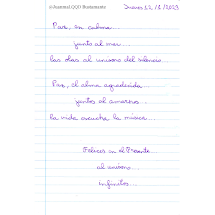 Jueves 12/10/2023
Paz, en calma...
junto al mar...
las olas al unísono del silencio.
Paz, el alma agradecida...
juntos al amarnos
la vida escucha la música...
Felices en el Frente...
al unísono...
infinitos...